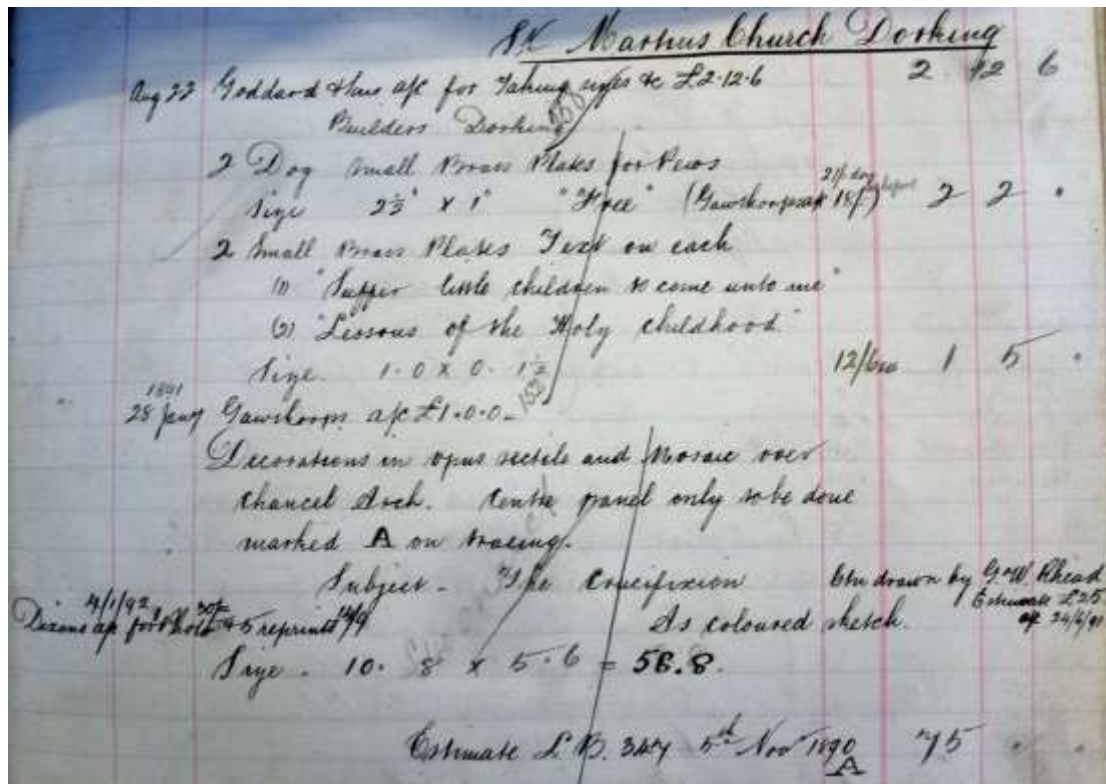 St Martins Church Dorking
Aug 22 Goddard & Sons a/c for Taking sizes &c £2.12.6 2 12 6
Builders Dorking
2 Doz small Brass Plates for Pews
21/- doz
Size 2½" x 1" "Free" (Gawthorps 18/-) 2 2 .
2 Small Brass Plates Text on each
(1) "Suffer little children to come unto me"
(2) "Lessons of the Holy childhood"
Size. 1.0 x 0.1½ 12/6 ea 1 5 .
1891
28 Jany Gawthorps a/c £1.0.0.
Decorations in opus sectile and Mosaic over
Chancel Arch. Centre panel only to be done
marked A on tracing.
Subject - "The Crucifixion Ctn drawn by G. W. Rhead
4/1/92 Estimate £25
Dixons a/c for 30/- & 5 reprints As coloured sketch. 24/6/91
Size. 10.8 x 5.6 = 58.8.
Estimate L.B. 347 5th Nov 1890 75 . .
A